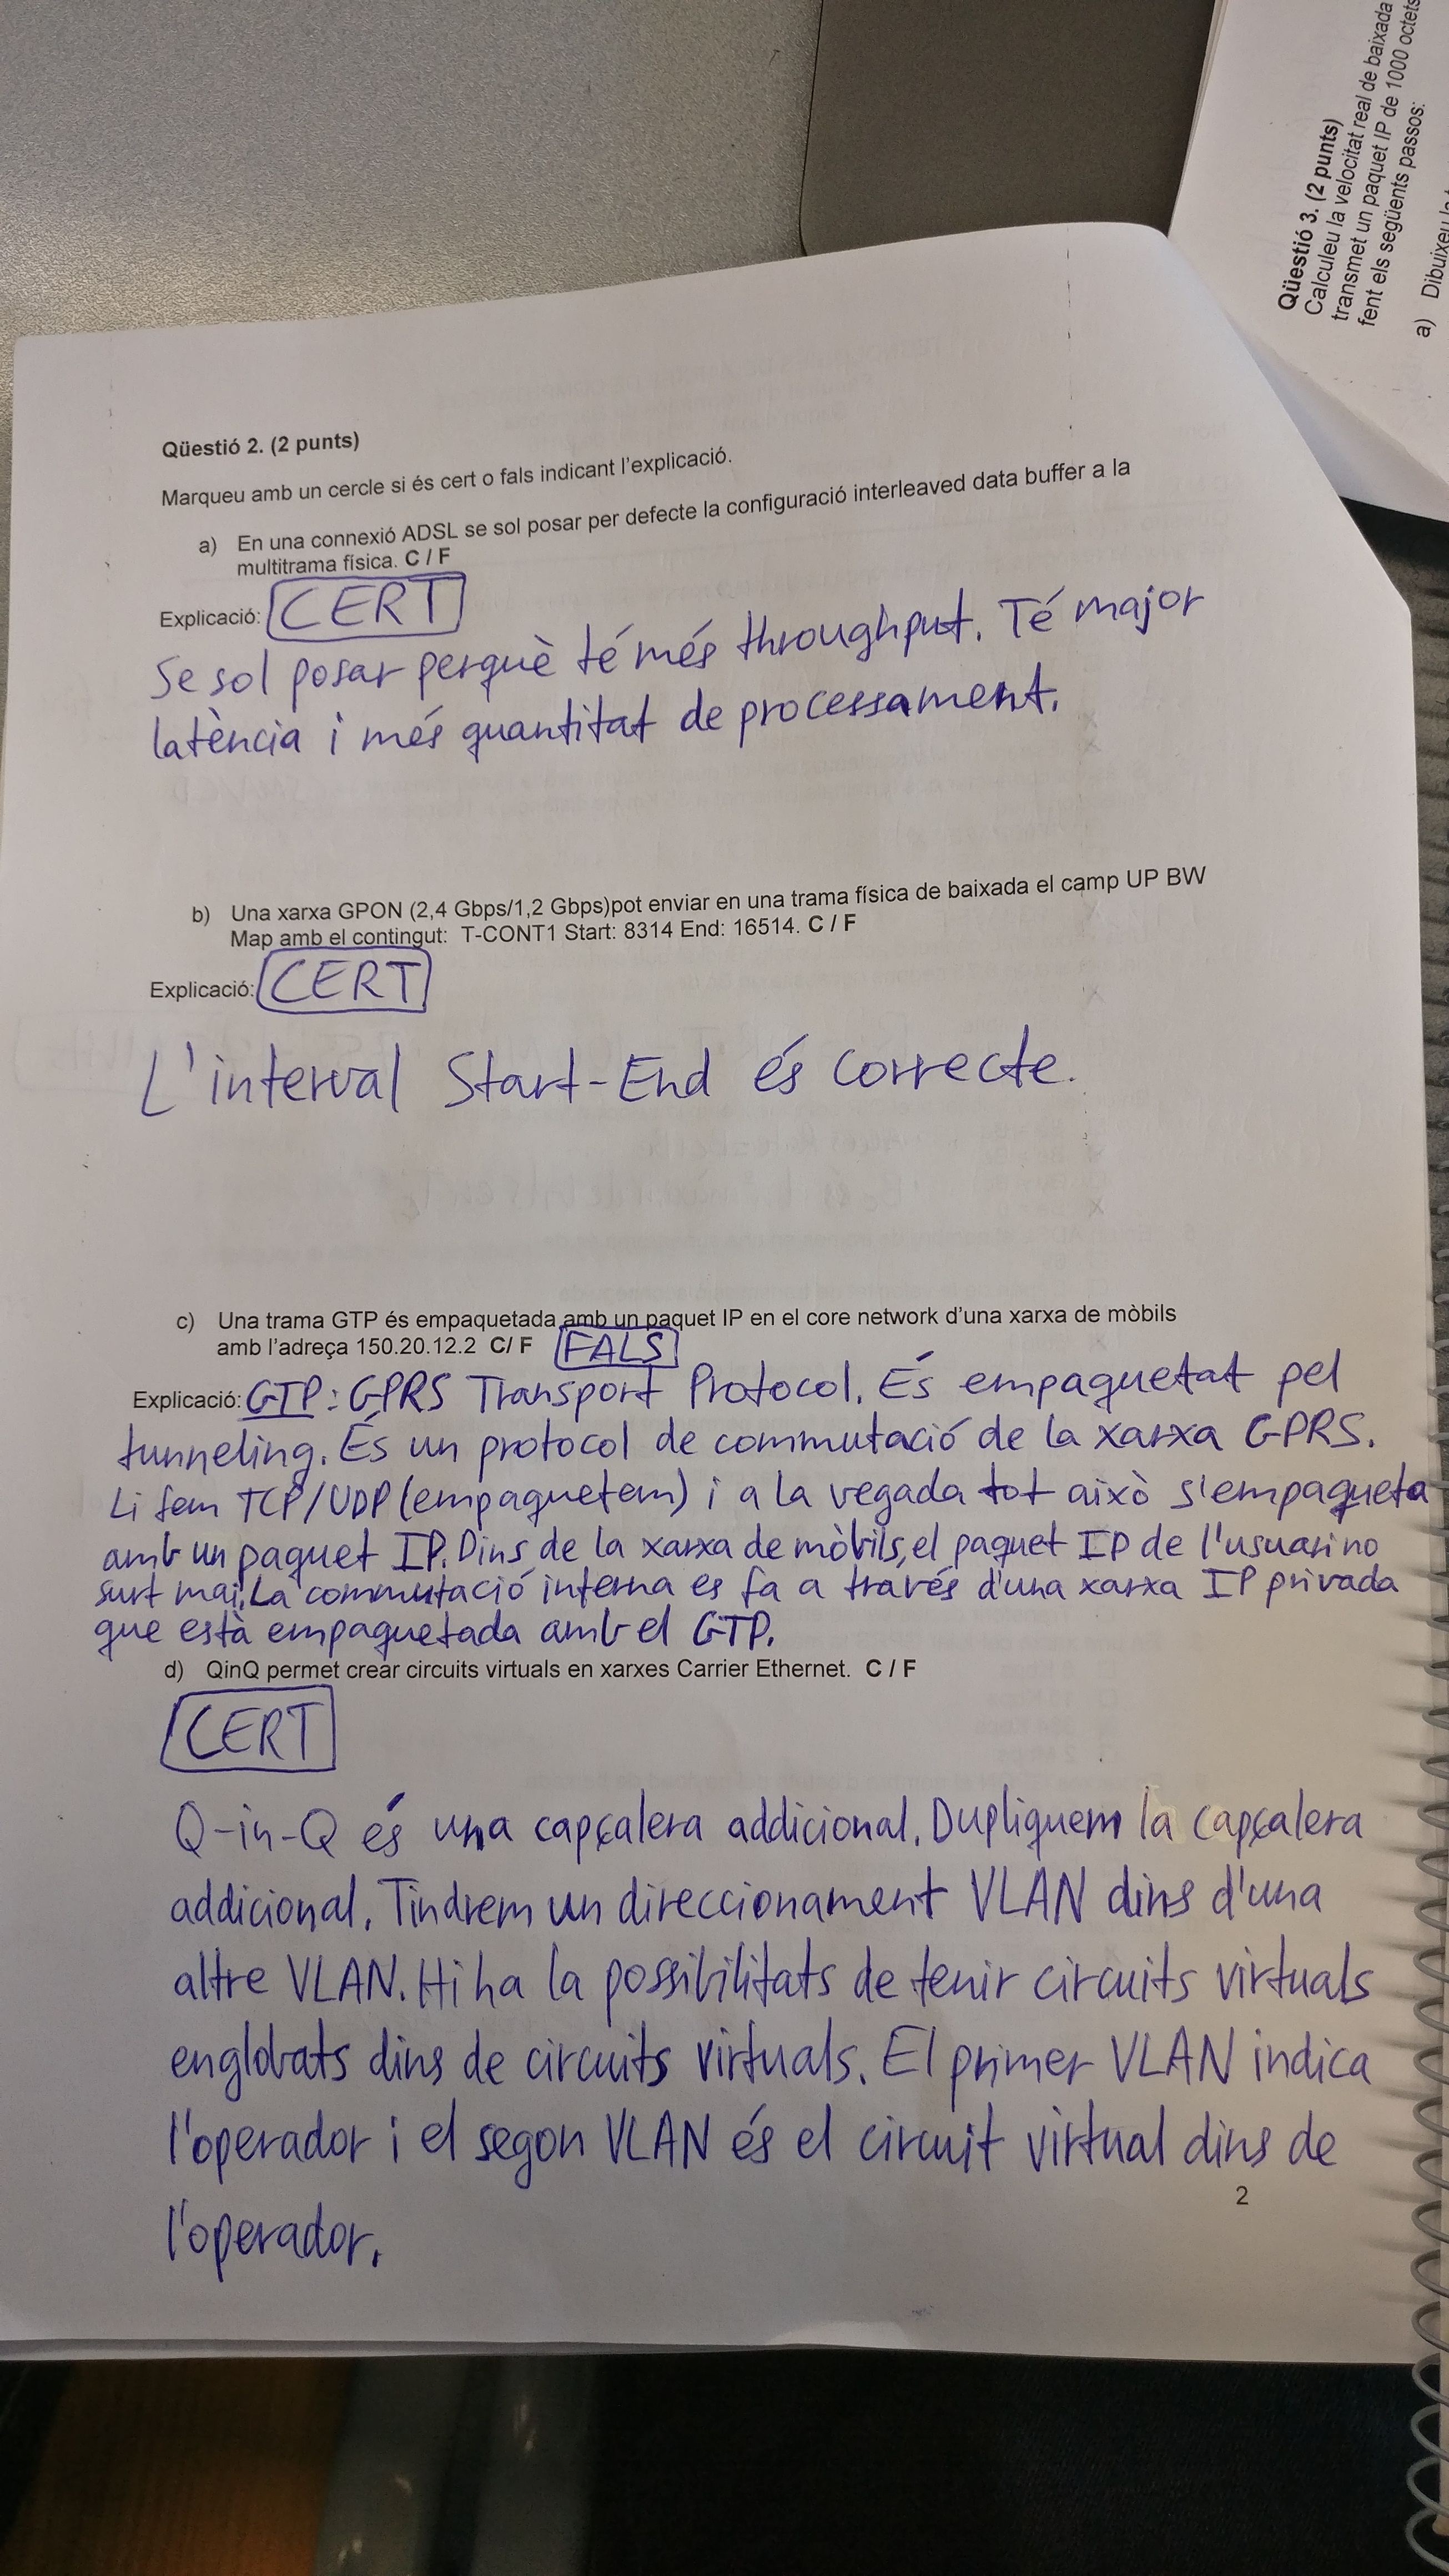 Qüestió 3. (2 punts)
Calculeu la velocitat real de baixada
transmet un paquet IP de 1000 octets
fent els següents passos:
a) Dibuixeu
Qüestió 2. (2 punts)
Marqueu amb un cercle si és cert o fals indicant l'explicació.
a) En una connexió ADSL se sol posar per defecte la configuració interleaved data buffer a la
multitrama física. C / F
Explicació: CERT
Se sol posar perquè té més throughput. Té major
latència i més quantitat de processament.
b) Una xarxa GPON (2,4 Gbps/1,2 Gbps)pot enviar en una trama física de baixada el camp UP BW
Map amb el contingut: T-CONT1 Start: 8314 End: 16514. C / F
Explicació: CERT
L'interval Start-End és correcte.
c) Una trama GTP és empaquetada amb un paquet IP en el core network d'una xarxa de mòbils
amb l'adreça 150.20.12.2 C/ F FALS
Explicació: GTP: GPRS Transport Protocol. És empaquetat pel
tunneling. És un protocol de commutació de la xarxa GPRS.
Li fem TCP/UDP (empaquetem) i a la vegada tot això s'empaqueta
amb un paquet IP. Dins de la xarxa de mòbils, el paquet IP de l'usuari no
surt mai. La commutació interna es fa a través d'una xarxa IP privada
que està empaquetada amb el GTP.
d) QinQ permet crear circuits virtuals en xarxes Carrier Ethernet. C / F
CERT
Q-in-Q és una capçalera addicional. Dupliquem la capçalera
addicional. Tindrem un direccionament VLAN dins d'una
altre VLAN. Hi ha la possibilitats de tenir circuits virtuals
englobats dins de circuits virtuals. El primer VLAN indica
l'operador i el segon VLAN és el circuit virtual dins de
l'operador.
2